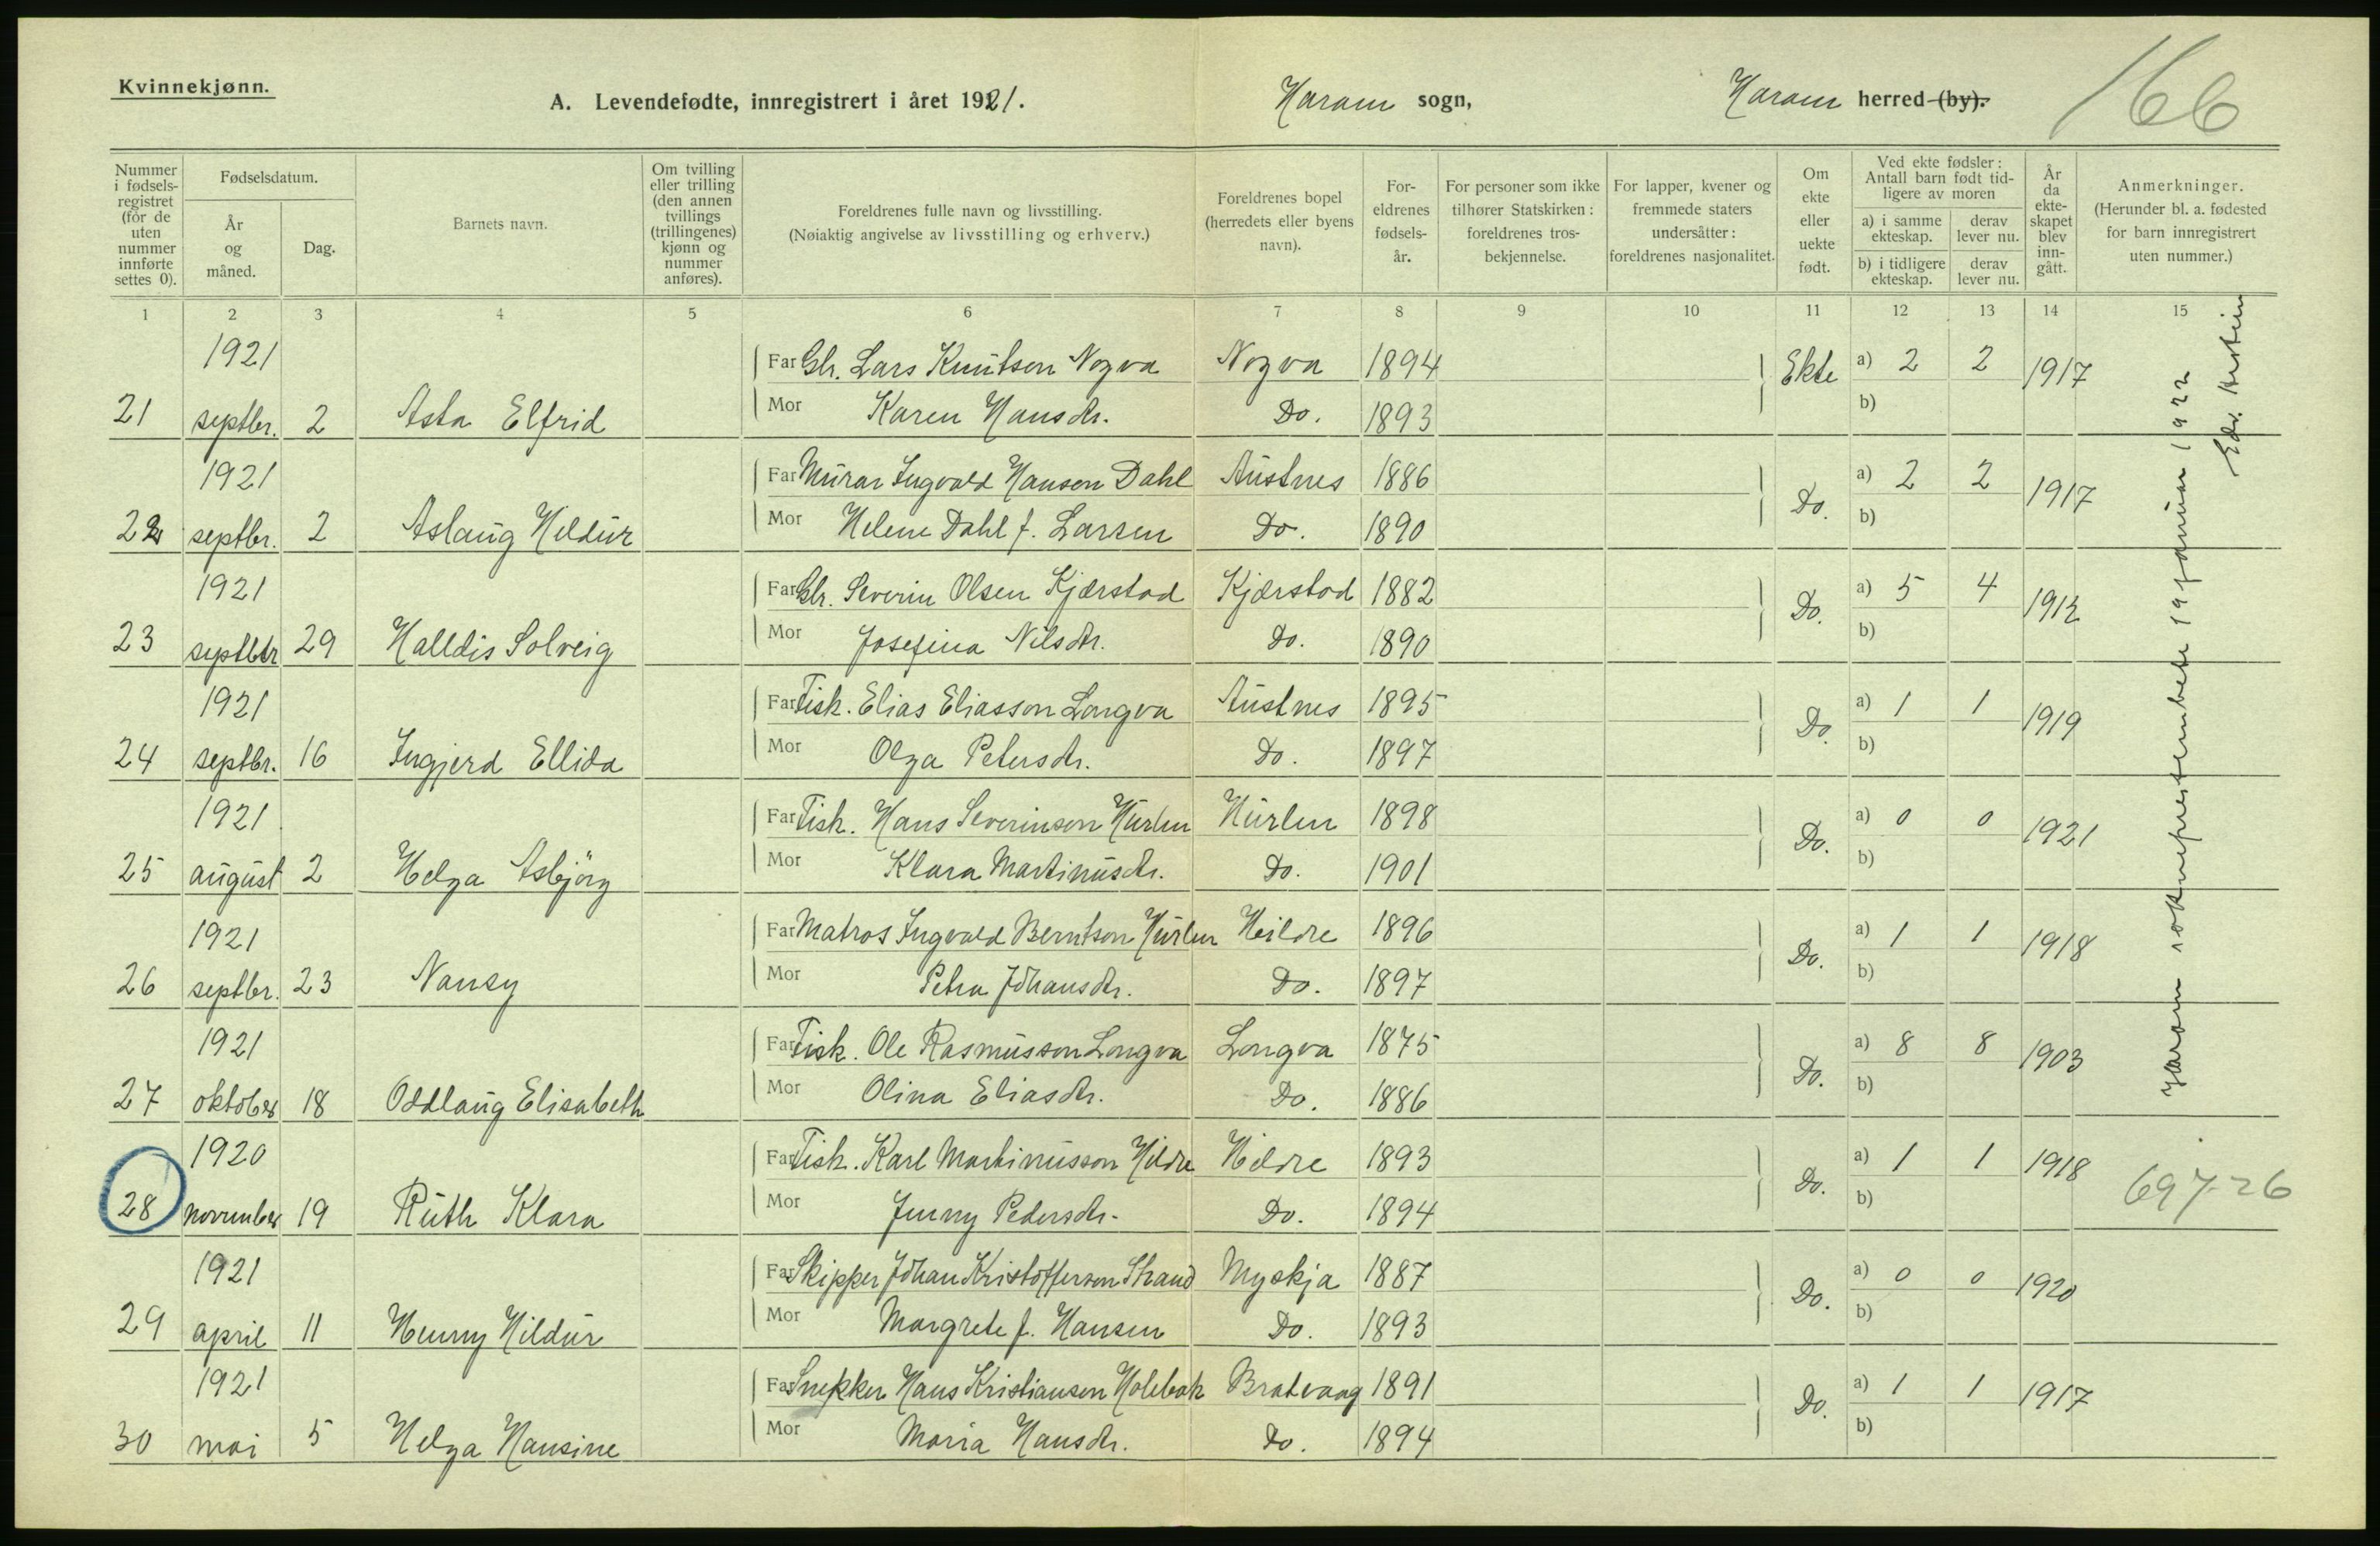 Kvinnekjønn.
A. Levendefødte, innregistrert i året 1921.
Haram sogn,
Haram herred (by).
166
Nummer i fødsels-registret (for de uten nummer innførte settes 0).
Fødselsdatum.
År og måned.
Dag.
Barnets navn.
Om tvilling eller trilling (den annen tvillings (trillingenes) kjønn og nummer anføres).
Foreldrenes fulle navn og livsstilling.
(Nøiaktig angivelse av livsstilling og erhverv.)
Foreldrenes bopel (herredets eller byens navn).
For-eldrenes fødsels-år.
For personer som ikke tilhører Statskirken: foreldrenes tros-bekjennelse.
For lapper, kvener og fremmede staters undersåtter: foreldrenes nasjonalitet.
Om ekte eller uekte født.
Ved ekte fødsler: Antall barn født tid-ligere av moren
a) i samme ekteskap.
derav lever nu.
b) i tidligere ekteskap.
derav lever nu.
År da ekte-skapet blev inn-gått.
Anmerkninger.
(Herunder bl. a. fødested for barn innregistrert uten nummer.)
1 2 3 4 5 6 7 8 9 10 11 12 13 14 15
1921 Far Gbr. Lars Knutson Nogva Nogva 1894 Ekte a) 2 2 1917
21 septbr. 2 Asta Elfrid Mor Karen Hansdtr. Do. 1893 b)
1921 Far Murar Ingvald Hanson Dahl Austnes 1886 Do. a) 2 2 1917
22 septbr. 2 Aslaug Hildur Mor Helene Dahl f. Larsen Do. 1890 b)
1921 Far Gbr. Severin Olsen Kjærstad Kjærstad 1882 Do. a) 5 4 1912
23 septbr 29 Halldis Solveig Mor Josefina Nilsdtr. Do. 1890 b)
1921 Far Fisk. Elias Eliasson Longva Austnes 1895 Do. a) 1 1 1919
24 septbr. 16 Ingjerd Ellida Mor Olga Petersdtr. Do. 1897 b)
1921 Far Fisk. Hans Severinson Hurlen Hurlen 1898 Do. a) 0 0 1921
25 august 2 Helga Asbjörg Mor Klara Martinusdtr. Do. 1901 b)
1921 Far Matros Ingvald Berntson Hurlen Heildre 1896 Do. a) 1 1 1918
26 septbr. 23 Nansy Mor Petra Johansdtr. Do. 1897 b)
1921 Far Fisk. Ole Rasmusson Longva Longva 1875 Do. a) 8 8 1903
27 oktober 18 Oddlaug Elisabeth Mor Olina Eliasdtr. Do. 1886 b)
1920 Far Fisk. Karl Martinusson Hildre Hildre 1893 Do. a) 1 1 1918
28 november 19 Ruth Klara Mor Jenny Pedersdtr. Do. 1894 b) 697-26
1921 Far Skipper Johan Kristofferson Strand Myskja 1887 Do. a) 0 0 1920
29 april 11 Henny Hildur Mor Margrete f. Hansen Do. 1893 b)
1921 Far Snekker Hans Kristiansen Holebak Bratvaag 1891 Do. a) 1 1 1917
30 mai 5 Helga Hansine Mor Maria Hansdtr. Do. 1894 b)
Haram sokneprestembete 19 januar 1922